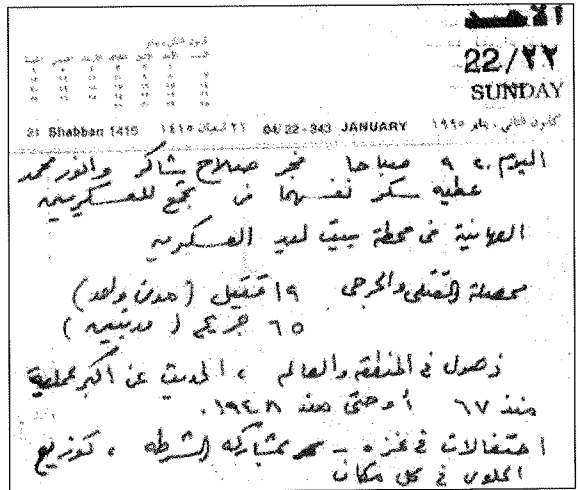 الأحد
22/٢٢
SUNDAY
21 Shabban 1415 ٢١ شعبان ١٤١٥ 04/22-343 JANUARY كانون ثاني - يناير ١٩٩٥
اليوم ٩٫٢٠ صباحا فجر صلاح شاكر وانور محمد
عطيه سكر نفسهما في تجمع للعسكريين
الصهاينة في محطة بيت ليد العسكرية
محصلة القتلى والجرحى ١٩ قتيل (مدن واحد)
٦٥ جريح (مدنيين)
ذهول في المنطقة والعالم ، الحديث عن اكبر عملية
منذ ٦٧ أو حتى منذ ١٩٤٨.
احتفالات في غزه - بمشاركه الشرطه ، توزيع
الحلوى في كل مكان